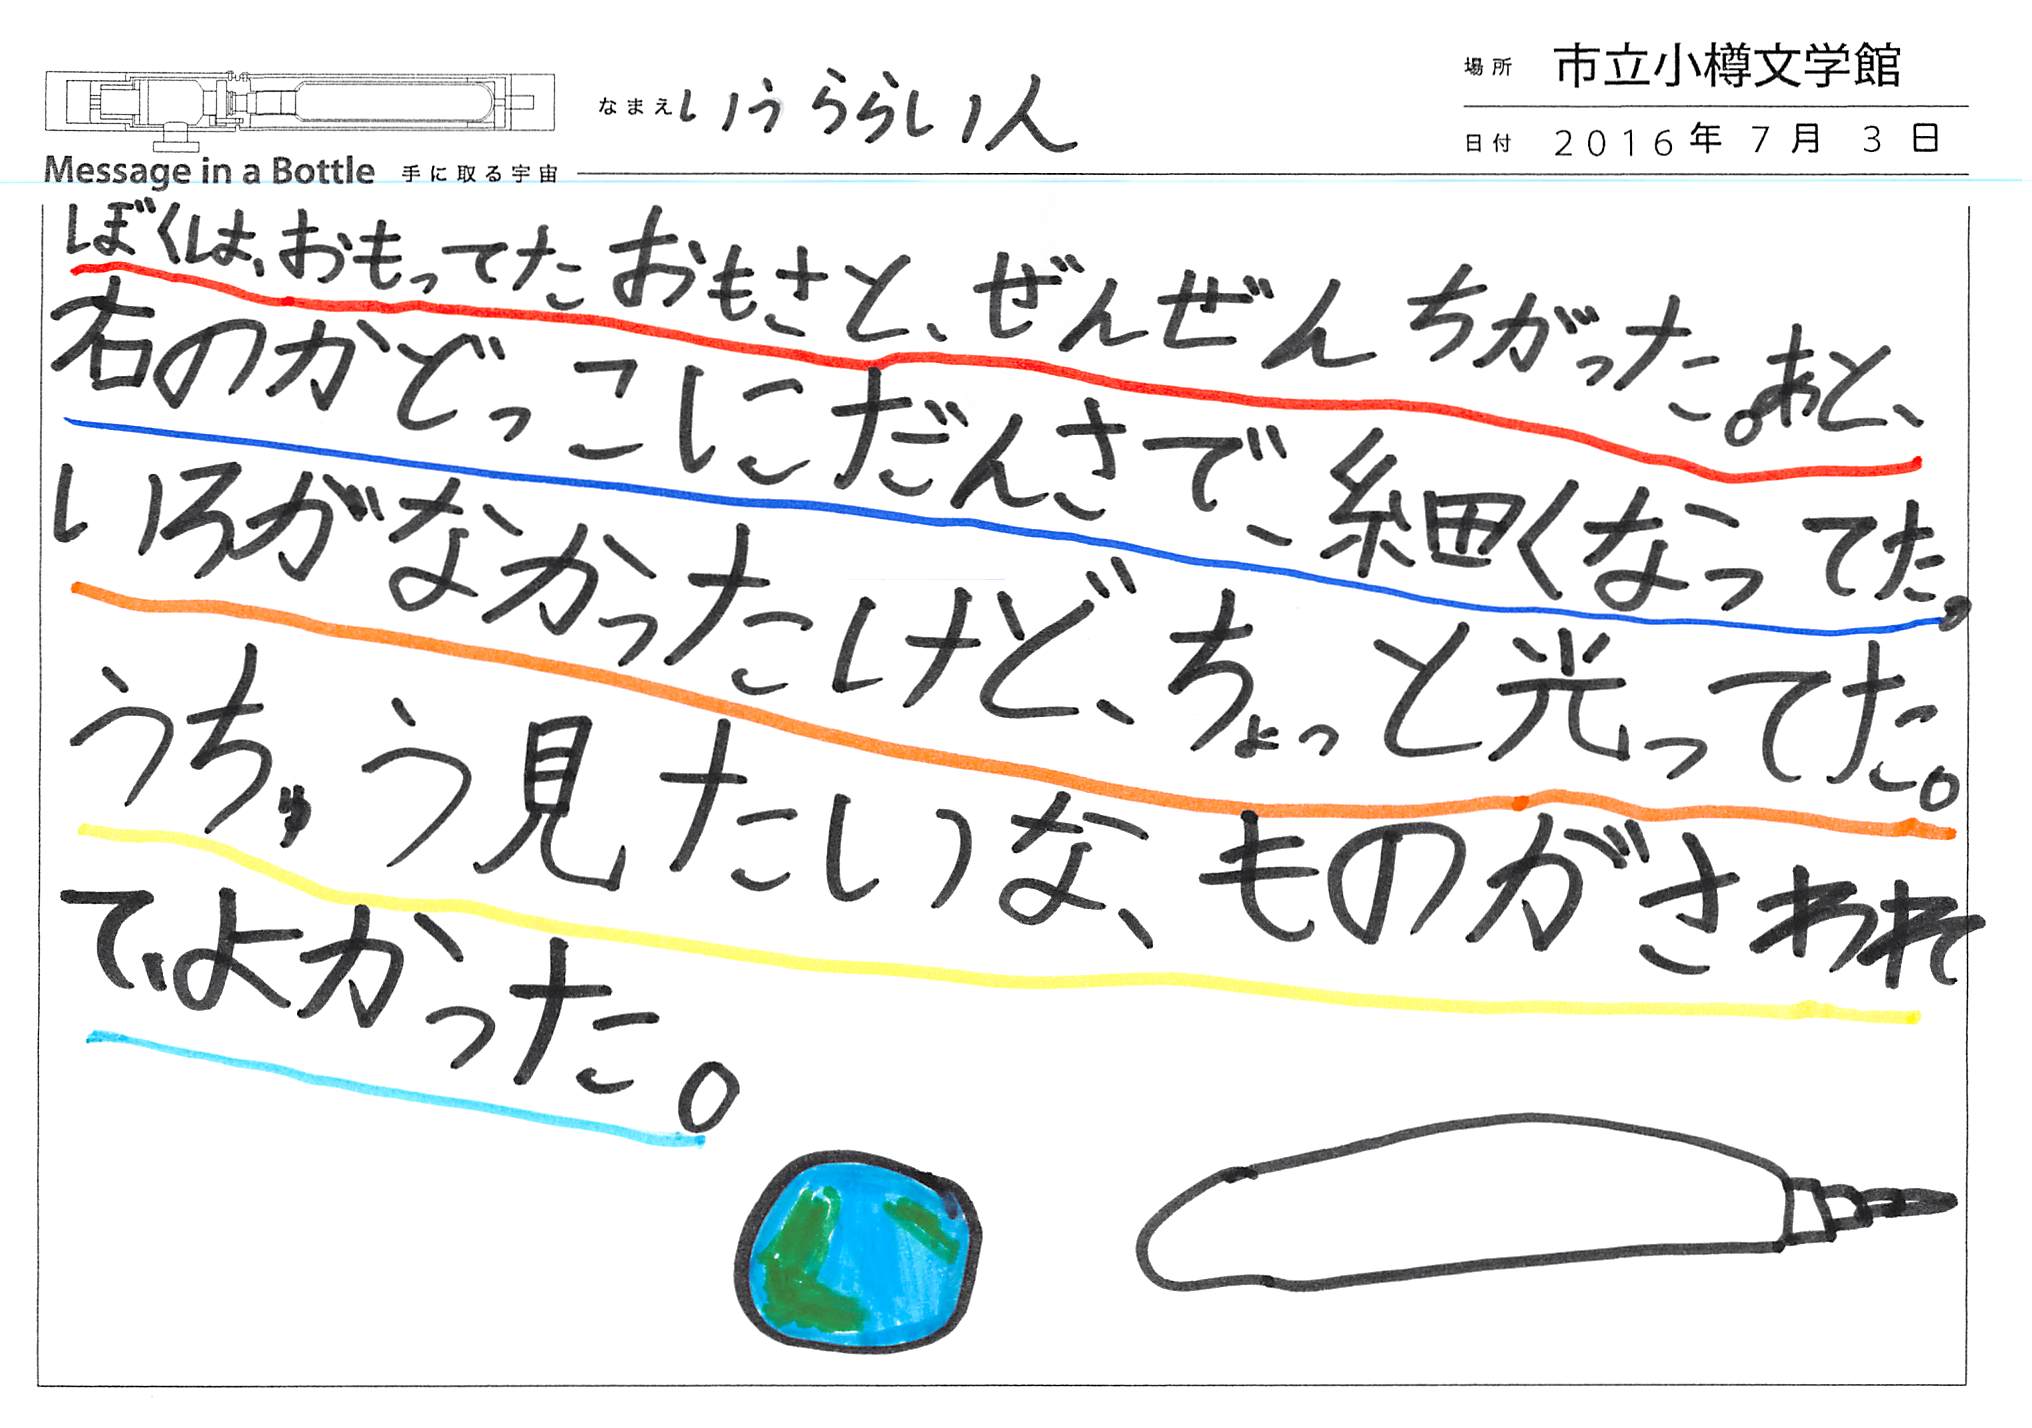 場所 市立小樽文学館
なまえ いうららいん
日付 2016年 7月 3日
Message in a Bottle 手に取る宇宙
ぼくは、おもってたおもさと、ぜんぜんちがった。あと、
右のかどっこしにだんさで、細くなってた,
いろがなかったけど、ちょっと光ってた。
うちゅう見たいな、ものがさわれ
て、よかった。